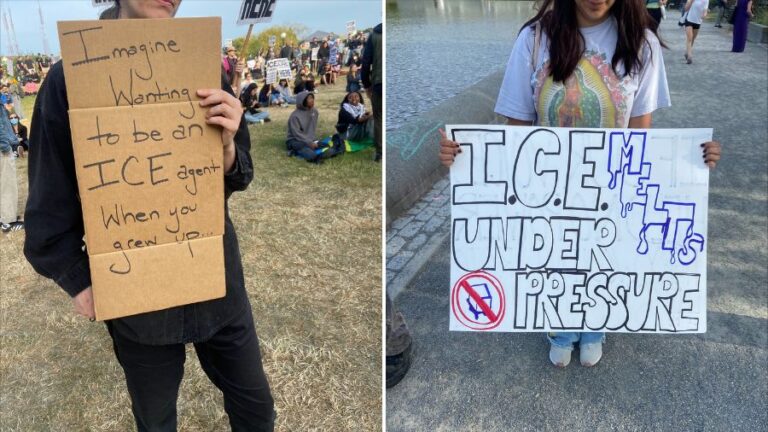 Imagine
Wanting
to be an
ICE agent
When you
grew up...
I.C.E. MELTS
UNDER
PRESSURE